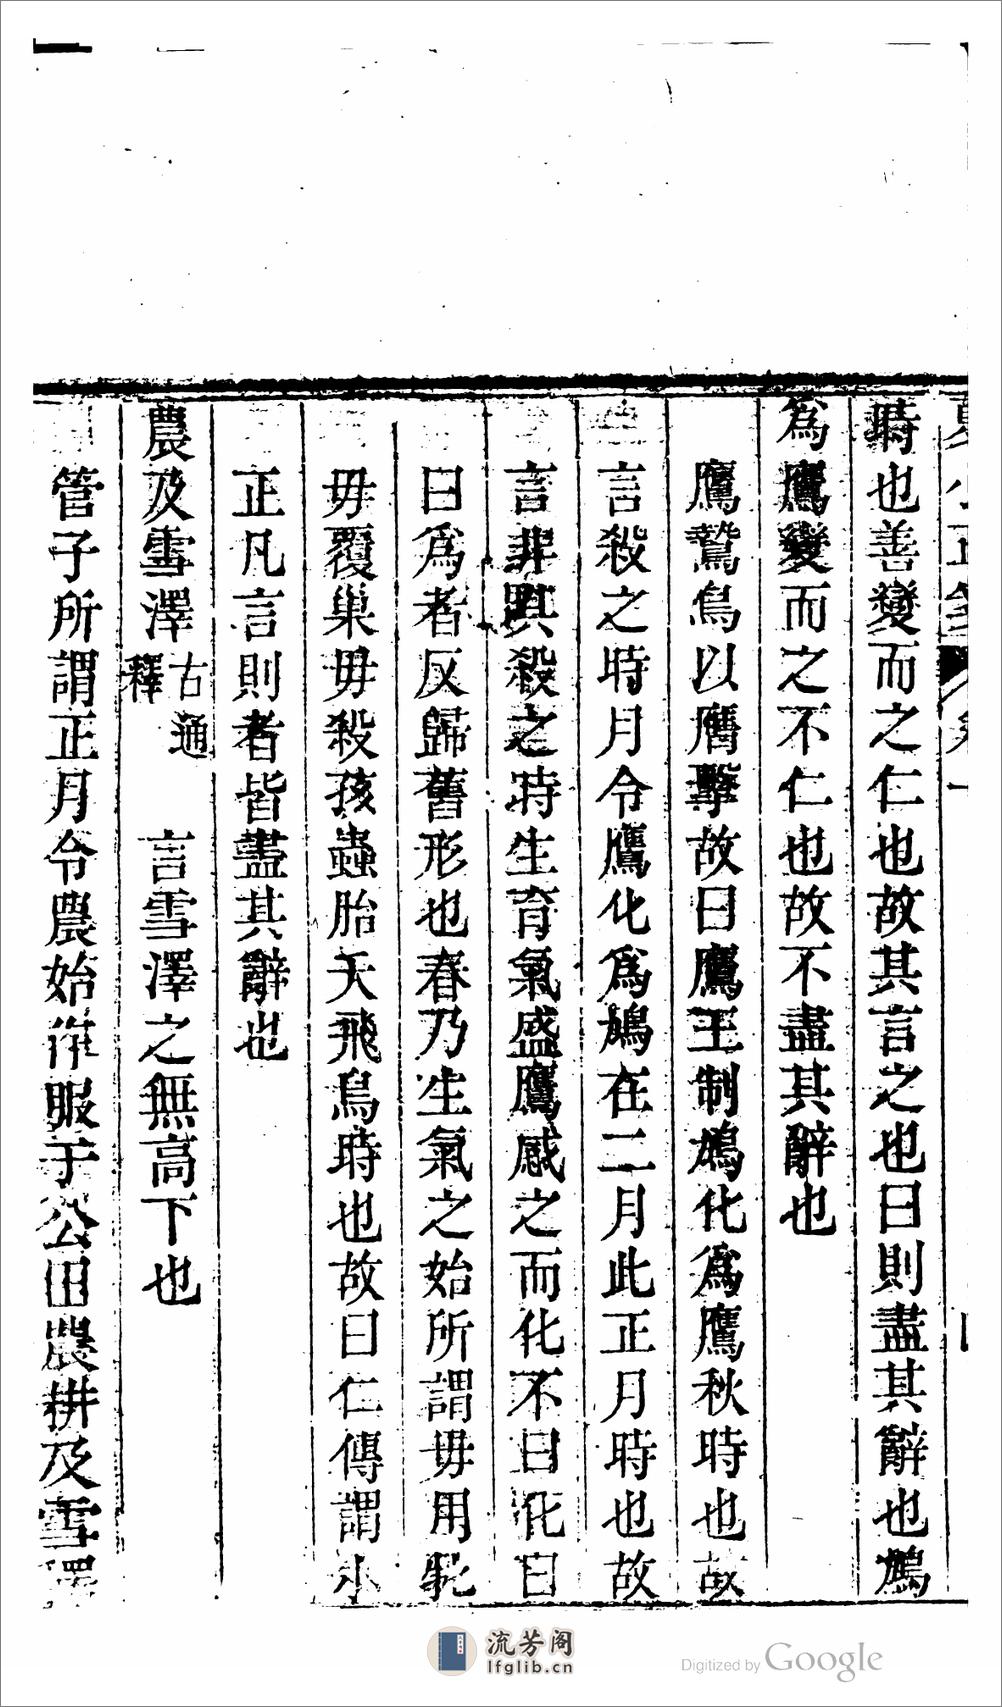 時也善變而之仁也故其言之也曰則盡其辭也鴆
為鷹變而之不仁也故不盡其辭也
鷹鷙鳥以膺擊故曰鷹王制鳩化為鷹秋時也故
言殺之時月令鷹化為鳩在二月此正月時也故
言非其殺之時生育氣盛鷹感之而化不曰化曰
曰為者反歸舊形也春乃生氣之始所謂毋用牝
毋覆巢毋殺孩蟲胎夭飛鳥時也故曰仁傳謂小
正凡言則者皆盡其辭也
農及雪澤 古通釋 言雪澤之無高下也
管子所謂正月令農始作服于公田農耕及雪澤
流芳阁
lfglib.cn
Digitized by Google